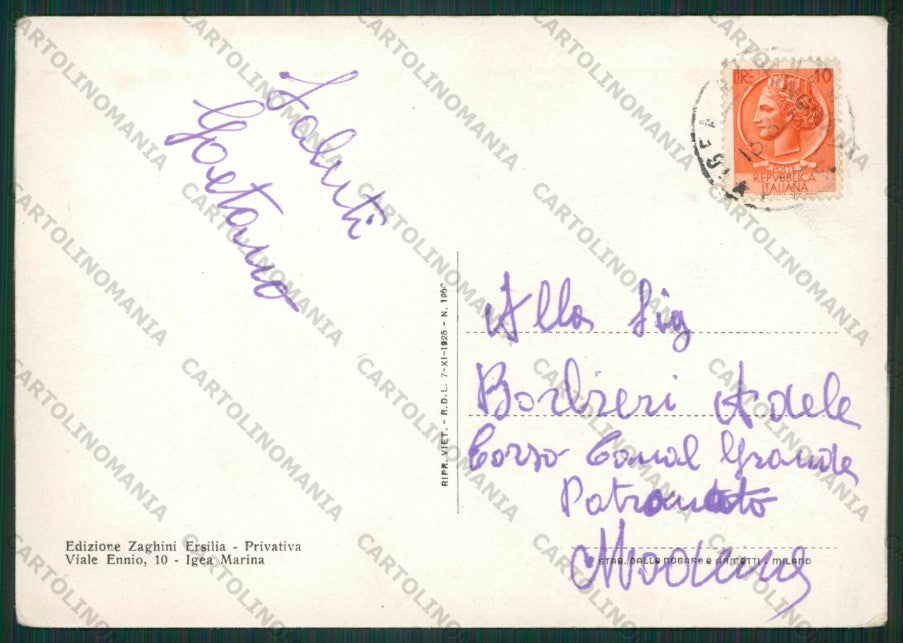 Saluti
Gaetano
LIRE 10
POSTE
REPVBBLICA
ITALIANA
IGEA
RIPR. VIET. - R.D.L. 7-XI-1925 - N. 1950
Alla Sig
Barbieri Adele
Corso Canal Grande
Patronato
Modena
Edizione Zaghini Ersilia - Privativa
Viale Ennio, 10 - Igea Marina
STAB. DALLE NOGARE e ARMETTI - MILANO
CARTOLINOMANIA